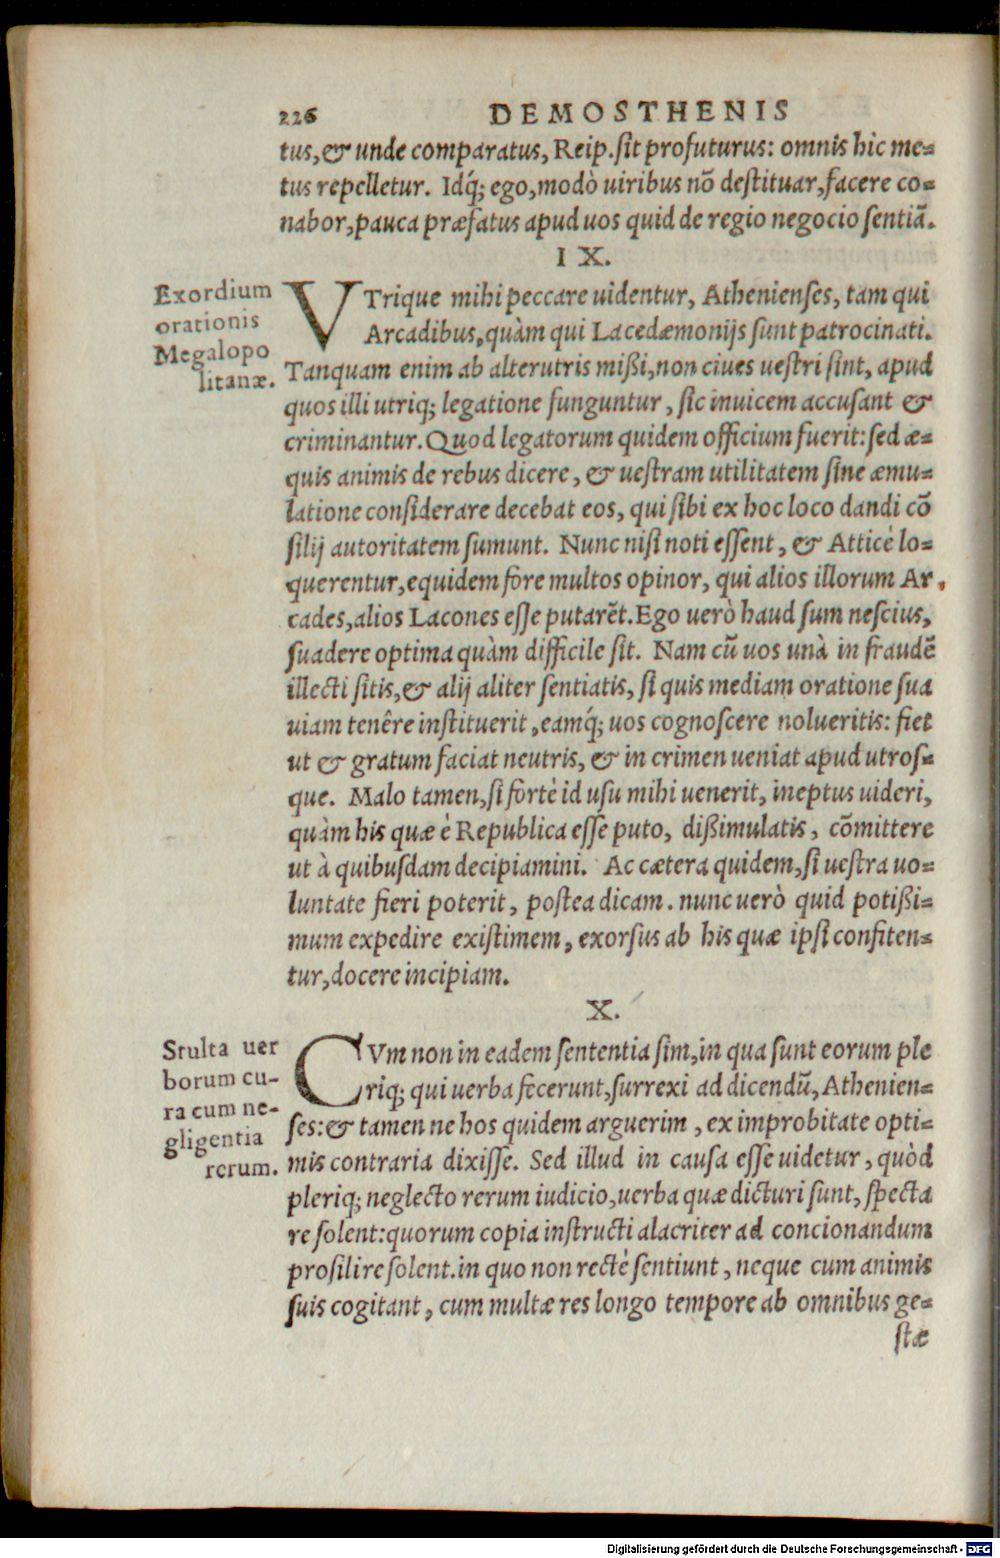 226 DEMOSTHENIS
tus, & unde comparatus, Reip. sit profuturus: omnis hic me-
tus repelletur. Idq́; ego, modò uiribus nõ destituar, facere co-
nabor, pauca præfatus apud uos quid de regio negocio sentiã.
IX.
Exordium
orationis
Megalopo
litanæ.
VTrique mihi peccare uidentur, Athenienses, tam qui
Arcadibus, quàm qui Lacedæmonijs sunt patrocinati.
Tanquam enim ab alterutris mißi, non ciues uestri sint, apud
quos illi utriq; legatione funguntur, sic inuicem accusant &
criminantur. Quod legatorum quidem officium fuerit: sed æ-
quis animis de rebus dicere, & uestram utilitatem sine æmu-
latione considerare decebat eos, qui sibi ex hoc loco dandi cõ
silij autoritatem sumunt. Nunc nisi noti essent, & Atticè lo-
querentur, equidem fore multos opinor, qui alios illorum Ar,
cades, alios Lacones esse putarẽt. Ego uerò haud sum nescius,
suadere optima quàm difficile sit. Nam cũ uos unà in fraudẽ
illecti sitis, & alij aliter sentiatis, si quis mediam oratione sua
uiam tenêre instituerit, eamq́; uos cognoscere nolueritis: fiet
ut & gratum faciat neutris, & in crimen ueniat apud utros-
que. Malo tamen, si fortè id usu mihi uenerit, ineptus uideri,
quàm his quæ è Republica esse puto, dißimulatis, cõmittere
ut à quibusdam decipiamini. Ac cætera quidem, si uestra uo-
luntate fieri poterit, postea dicam. nunc uerò quid potißi-
mum expedire existimem, exorsus ab his quæ ipsi confiten-
tur, docere incipiam.
X.
Stulta uer
borum cu-
ra cum ne-
gligentia
rerum.
CVm non in eadem sententia sim, in qua sunt eorum ple
riq; qui uerba fecerunt, surrexi ad dicendũ, Athenien-
ses: & tamen ne hos quidem arguerim, ex improbitate opti-
mis contraria dixisse. Sed illud in causa esse uidetur, quòd
pleriq; neglecto rerum iudicio, uerba quæ dicturi sunt, specta
re solent: quorum copia instructi alacriter ad concionandum
prosilire solent. in quo non rectè sentiunt, neque cum animis
suis cogitant, cum multæ res longo tempore ab omnibus ge-
stæ
Digitalisierung gefördert durch die Deutsche Forschungsgemeinschaft - DFG